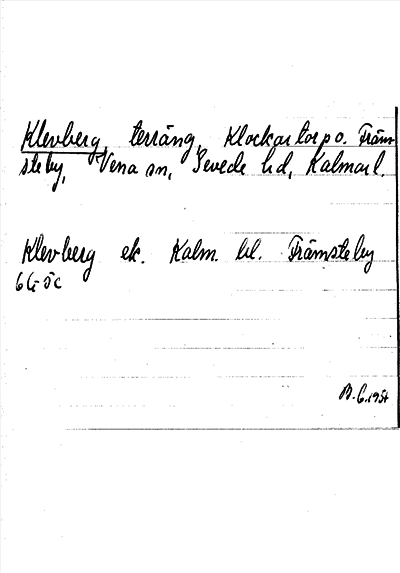 Klevberg, terräng, Klockartorp o. Främ-
steby, Vena sn, Sevede hd, Kalmar l.
Klevberg ek. Kalm. bl. Främsteby
6G5c
B.G.1954